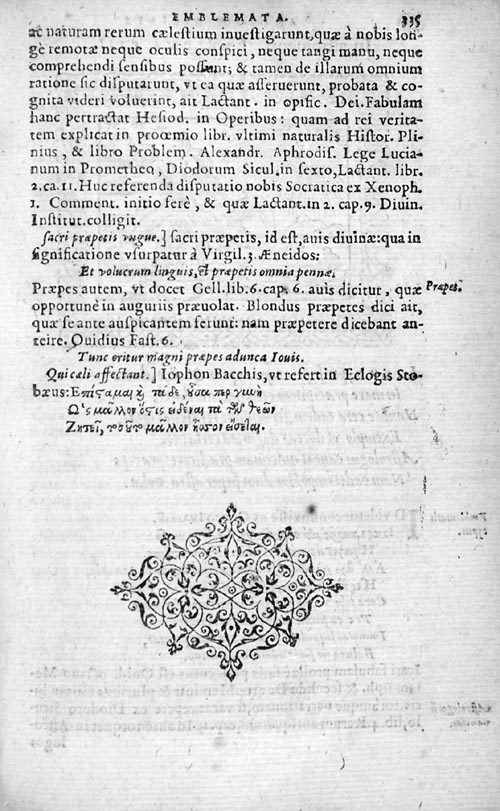 EMBLEMATA. 335
ac naturam rerum cælestium inuestigarunt, quæ à nobis lon-
gè remotæ neque oculis conspici, neque tangi manu, neque
comprehendi sensibus possunt; & tamen de illarum omnium
ratione sic disputarunt, vt ea quæ asseruerunt, probata & co-
gnita videri voluerint, ait Lactant. in opific. Dei. Fabulam
hanc pertractat Hesiod. in Operibus: quam ad rei verita-
tem explicat in proœmio libr. vltimi naturalis Histor. Pli-
nius, & libro Problem. Alexandr. Aphrodis. Lege Lucia-
num in Prometheo, Diodorum Sicul. in sexto, Lactant. libr.
2. ca. 11. Huc referenda disputatio nobis Socratica ex Xenoph.
1. Comment. initio ferè, & quæ Lactant. in 2. cap. 9. Diuin.
Institut. colligit.
sacri præpetis vngue.] sacri præpetis, id est, auis diuinæ: qua in
significatione vsurpatur à Virgil. 3. Æneidos:
Et volucrum linguis, & præpetis omnia pennæ.
Præpes autem, vt docet Gell. lib. 6. cap. 6. auis dicitur, quæ
Præpes.
opportunè in auguriis præuolat. Blondus præpetes dici ait,
quæ se ante auspicantem ferunt: nam præpetere dicebant an-
teire. Ouidius Fast. 6.
Tunc oritur magni præpes adunca Iouis.
Qui cæli affectant.] Iophon Bacchis, vt refert in Eclogis Sto-
bæus: Ἐπίσταμαι ϗ τά δε, οὖσα περ γυνὴ
Ὡς μᾶλλον ὅστις εἰδέναι τὰ τῶν θεῶν
Ζητεῖ, τοσούτω μᾶλλον ἧσσον εἴσεται.